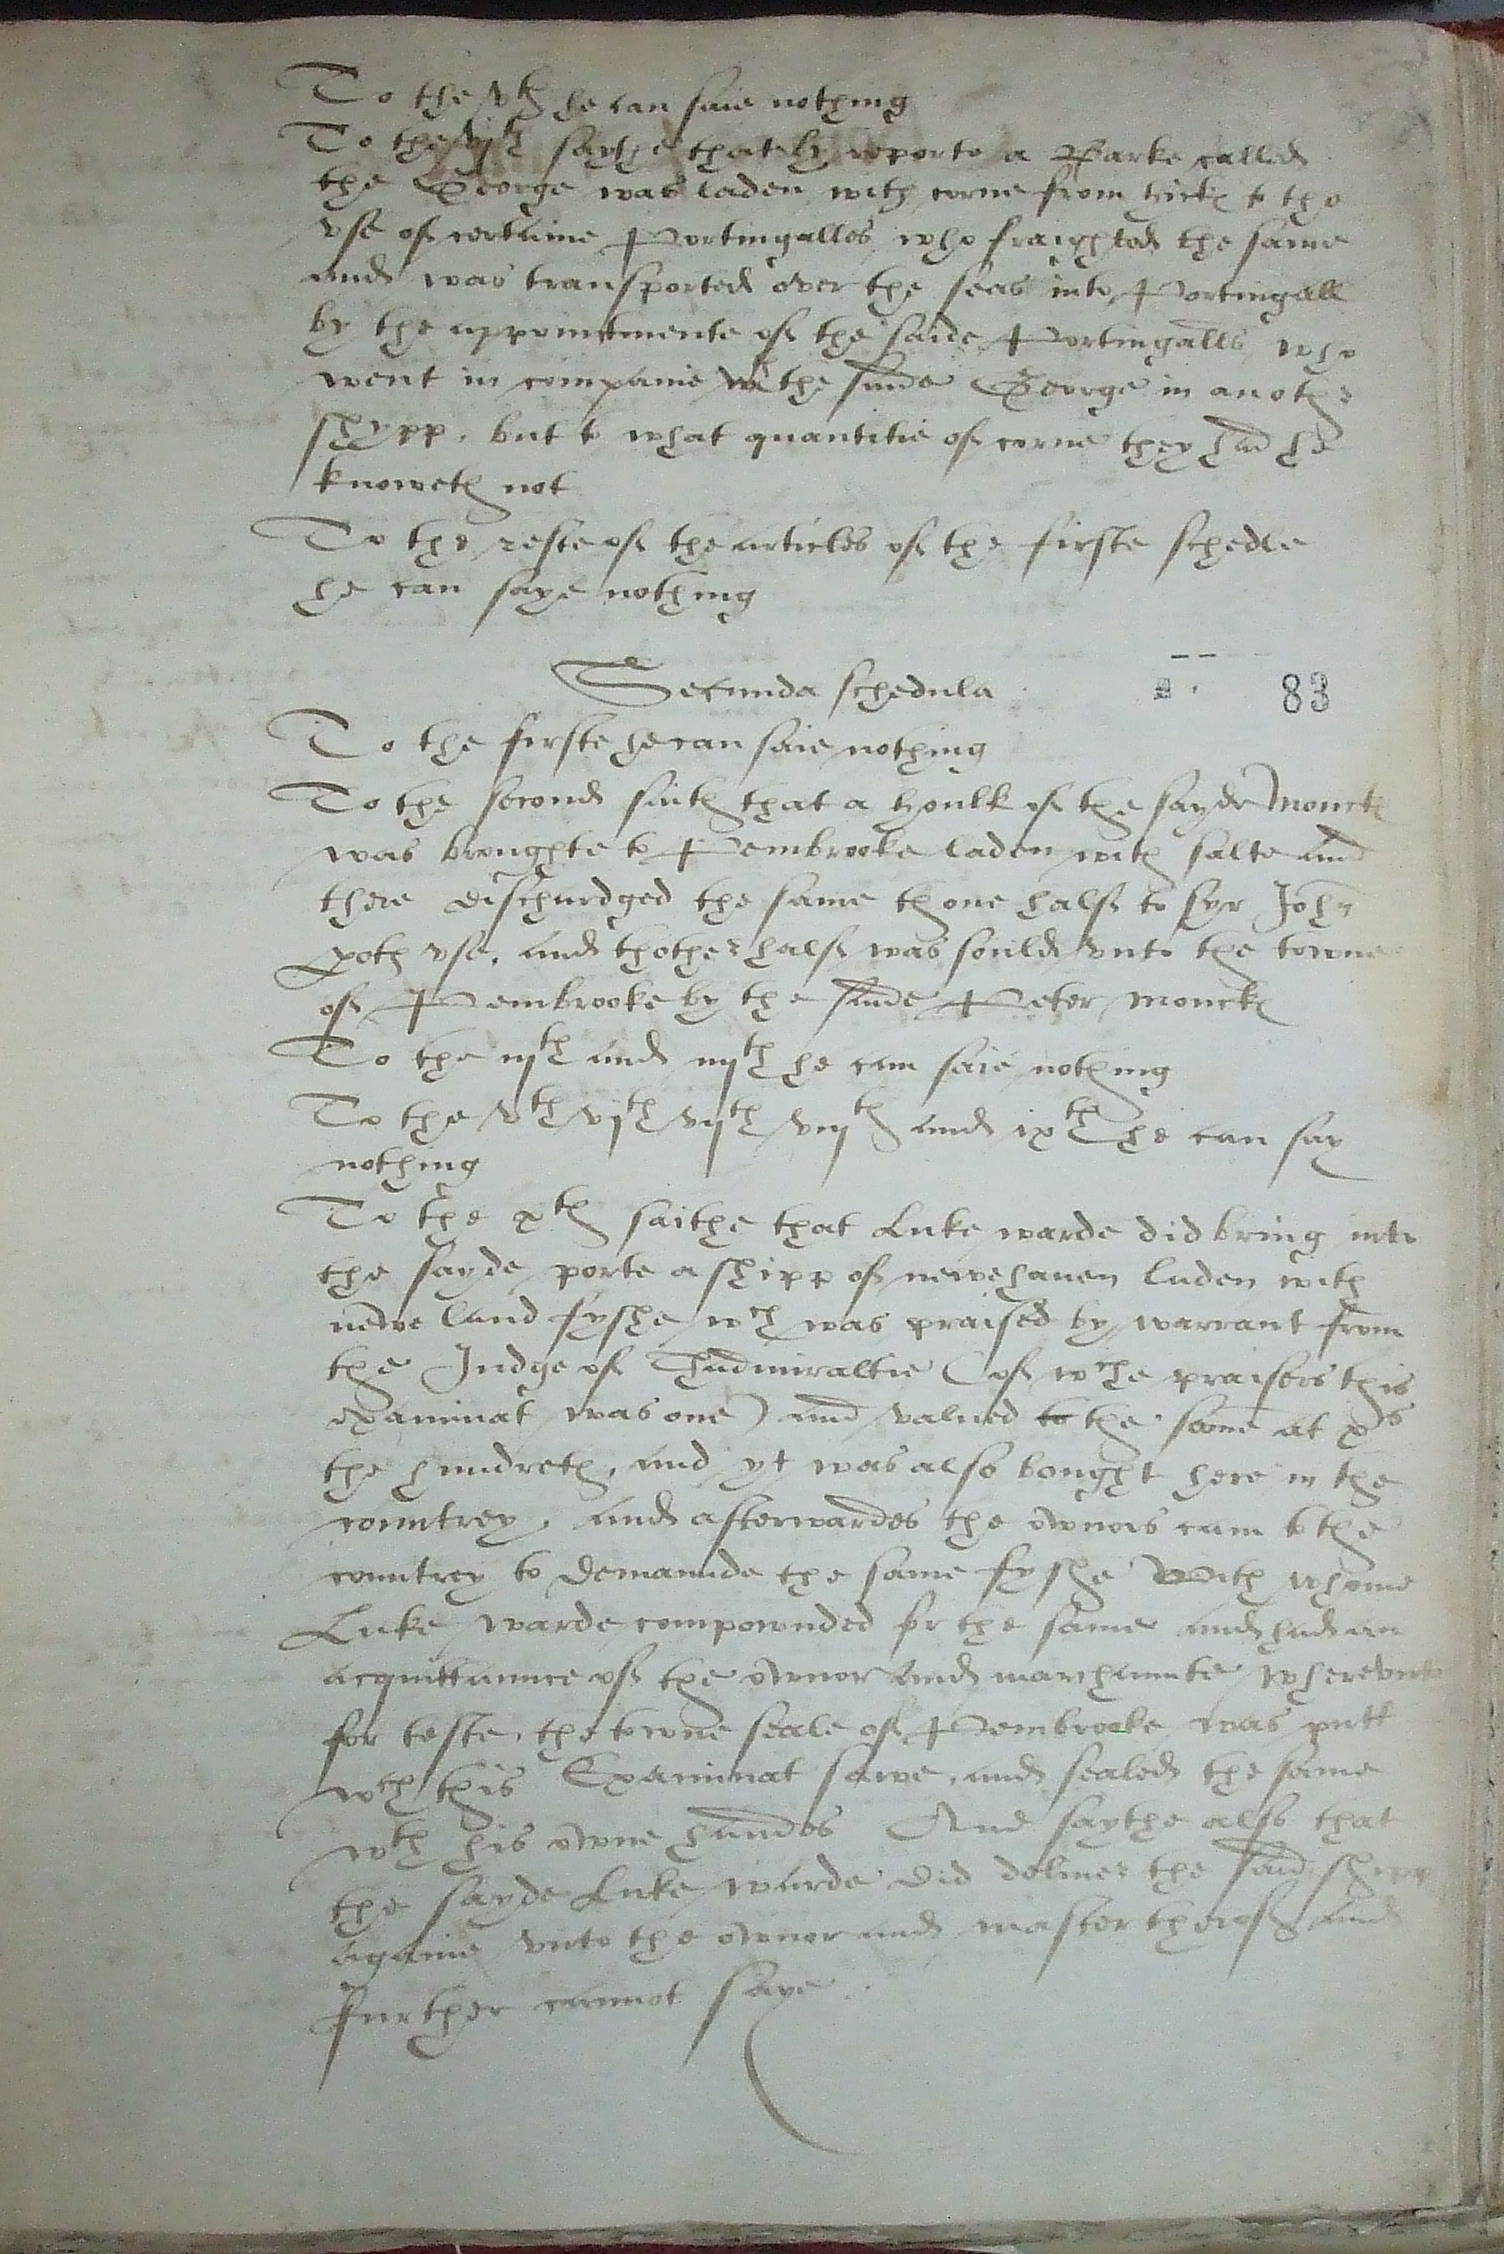 To the vth he can saie nothing
To the vjth saythe that by reporte a Barke called
the George was laden with corne from hence to the
vse of certaine Portingalles who fraighted the same
and was transported over the seas into Portingall
by the appointmente of the saide Portingalls who
went in companie wth the saide George in another
shypp, but to what quantitie of corne they had he
knoweth not
To the reste of the articles of the firste schedle
he can saye nothing
Secunda schedula
83
To the firste he can saie nothing
To the second saith that a houlk of the sayde Monck
was broughte to Pembrooke laden with salte and
there dischardged the same thone half to syr John
use, and thother half was sould vnto the towne
of Pembrooke by the saide Peter Monck
To the iijth and iiijth he can saie nothing
To the vth vjth vijth viijth and ixth he can say
nothing
To the xth saithe that Luke warde did bring into
the sayde porte a shipp of newehaven laden with
newe land fyshe wch was praised by warrant from
the Judge of Thadmiraltie (of wche praisers this
examinat was one) and valued to the same at xs
the hundreth, and yt was also bought here in the
countrey, and afterwardes the owners cam to the
countrey to demaunde the same fyshe With whome
Luke warde compownded for the same and had an
acquittaunce of the owner and marchaunte wherevnto
for teste, the towne seale of Pembrooke was putt
wch this Examinat sawe, and sealed the same
wth his owne handes And saythe also that
the sayde Luke warde did deliuer the said shipp
againe vnto the owner and master therof and
further cannot saye.